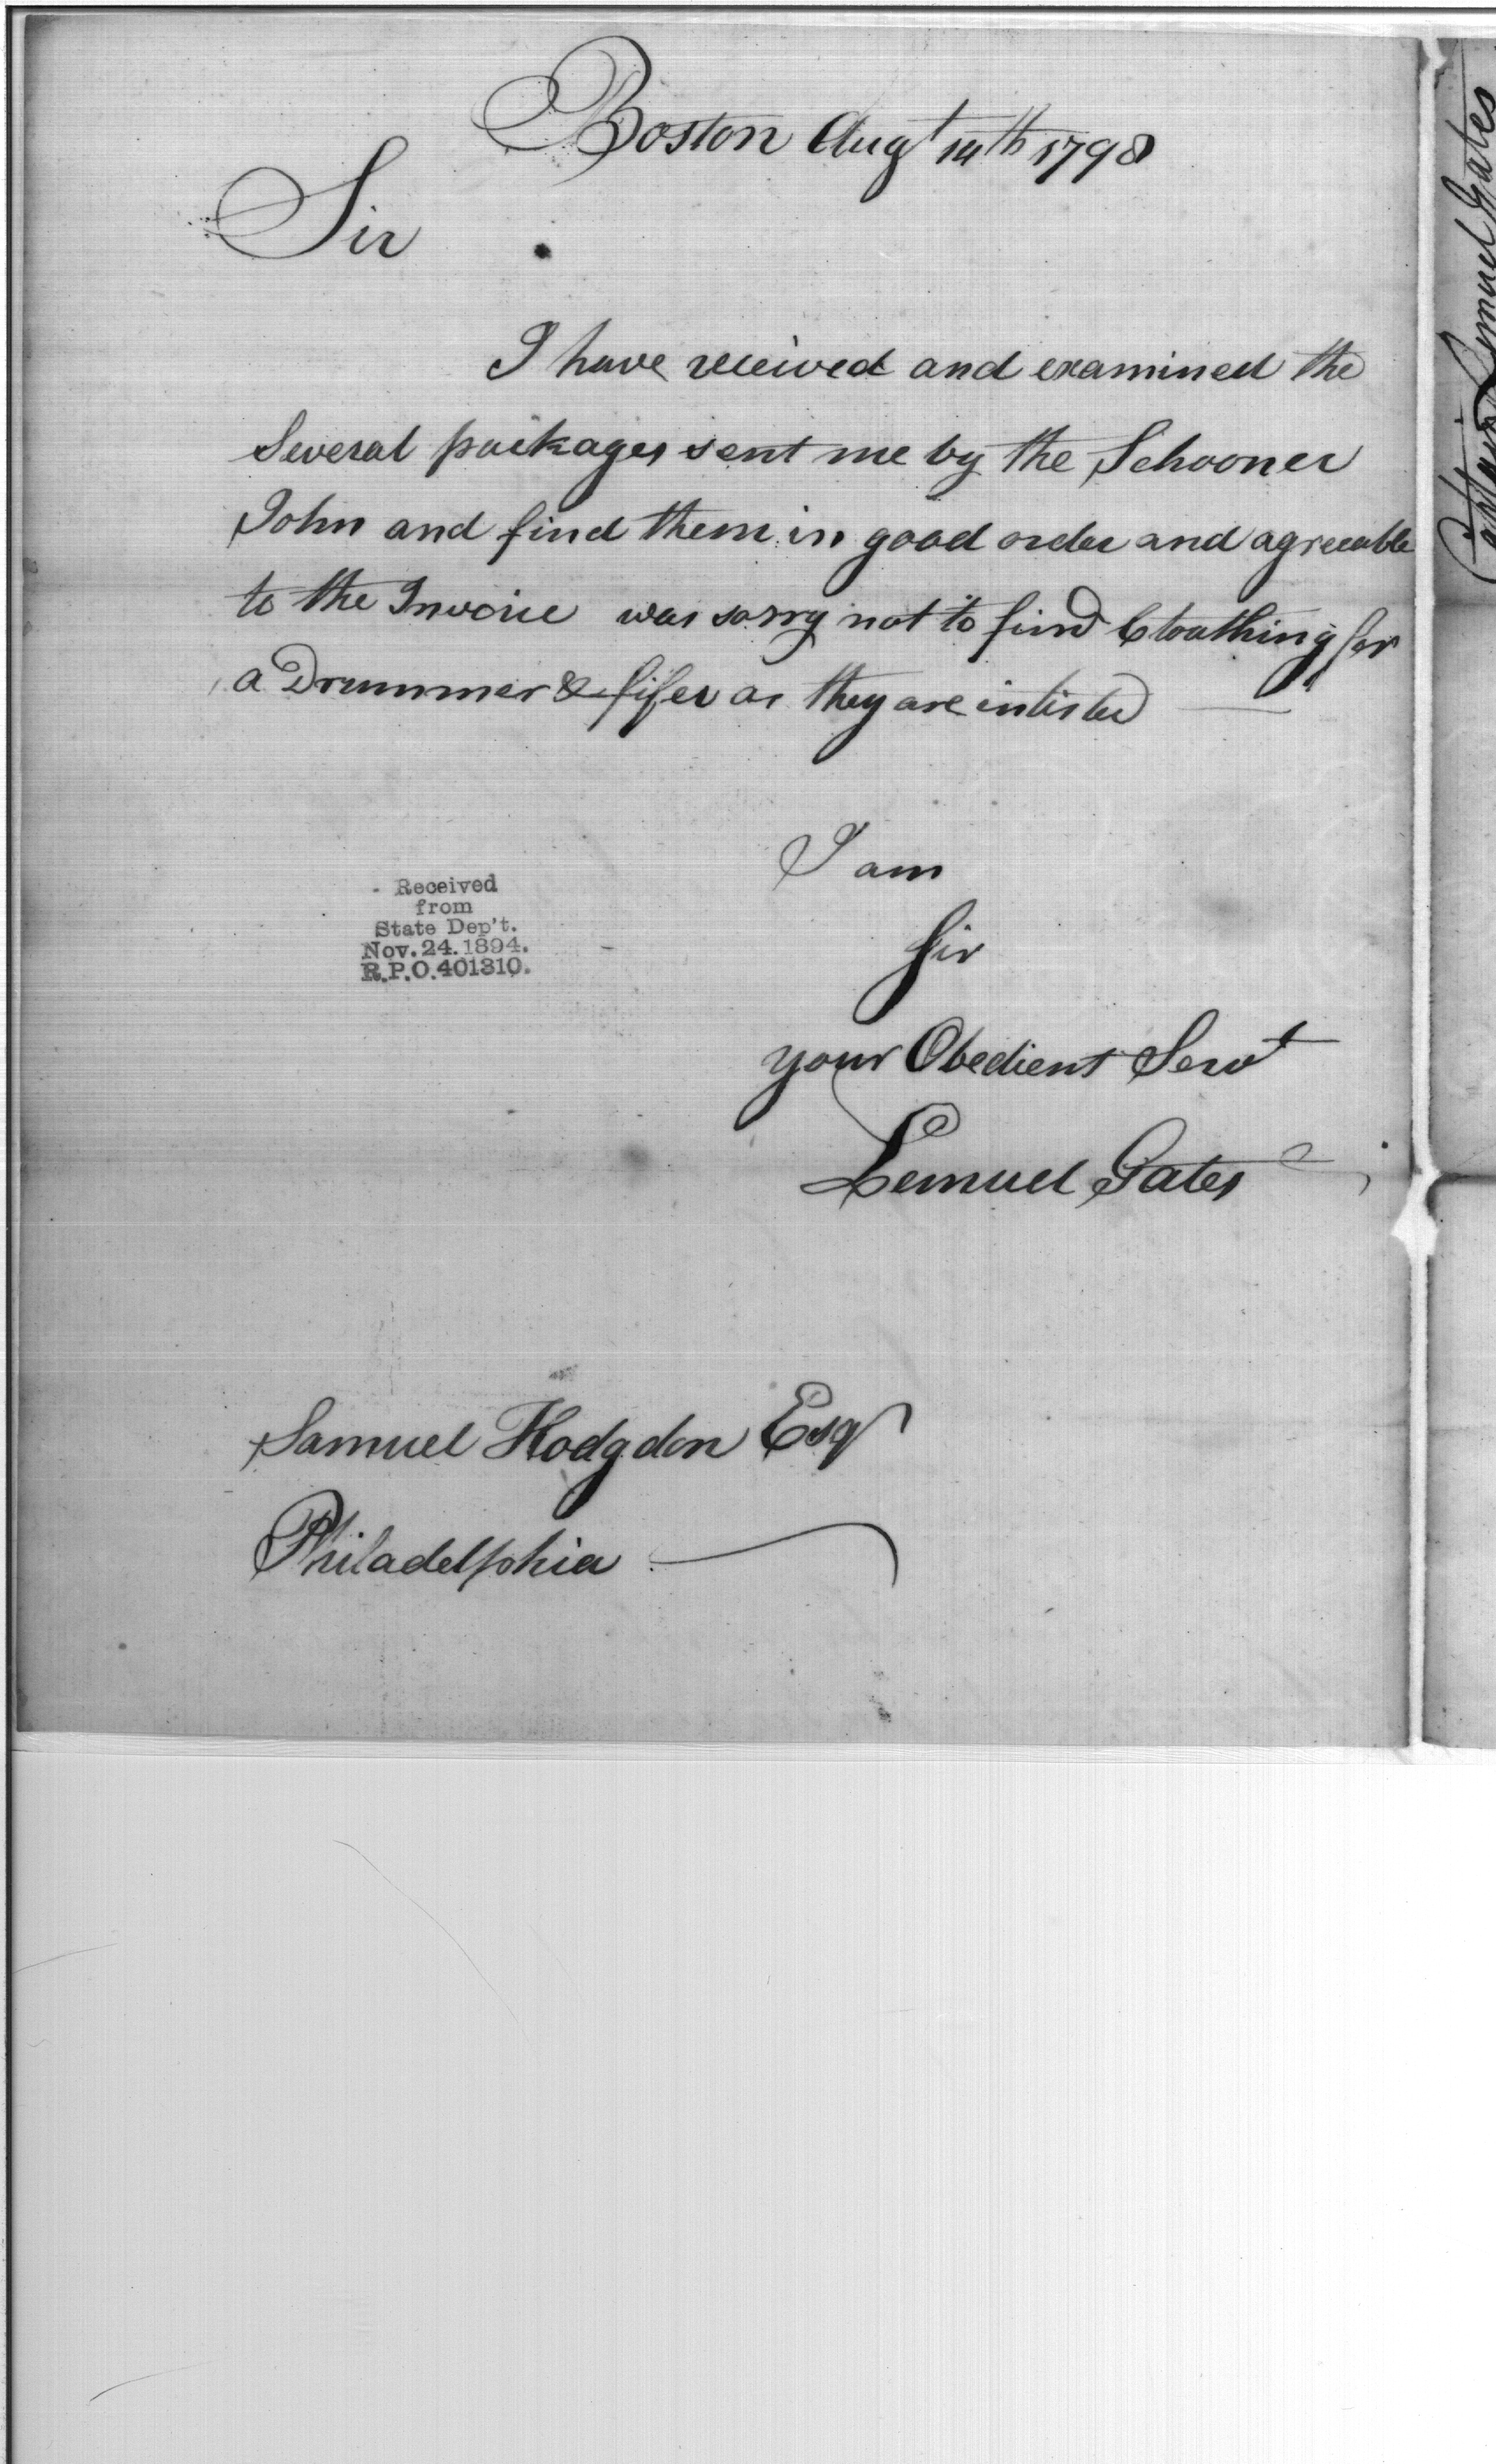 Boston Augt 14th 1798
Sir
I have received and examined the
Several packages sent me by the Schooner
John and find them in good order and agreeable
to the Invoice was sorry not to find Cloathing for
a Drummer & fifer as they are inlisted
I am
Sir
your Obedient Servt
Lemuel Gates
Received
from
State Dep't.
Nov. 24. 1894.
R.P.O. 401310.
Samuel Hodgdon Esqr
Philadelphia
Lemuel Gates